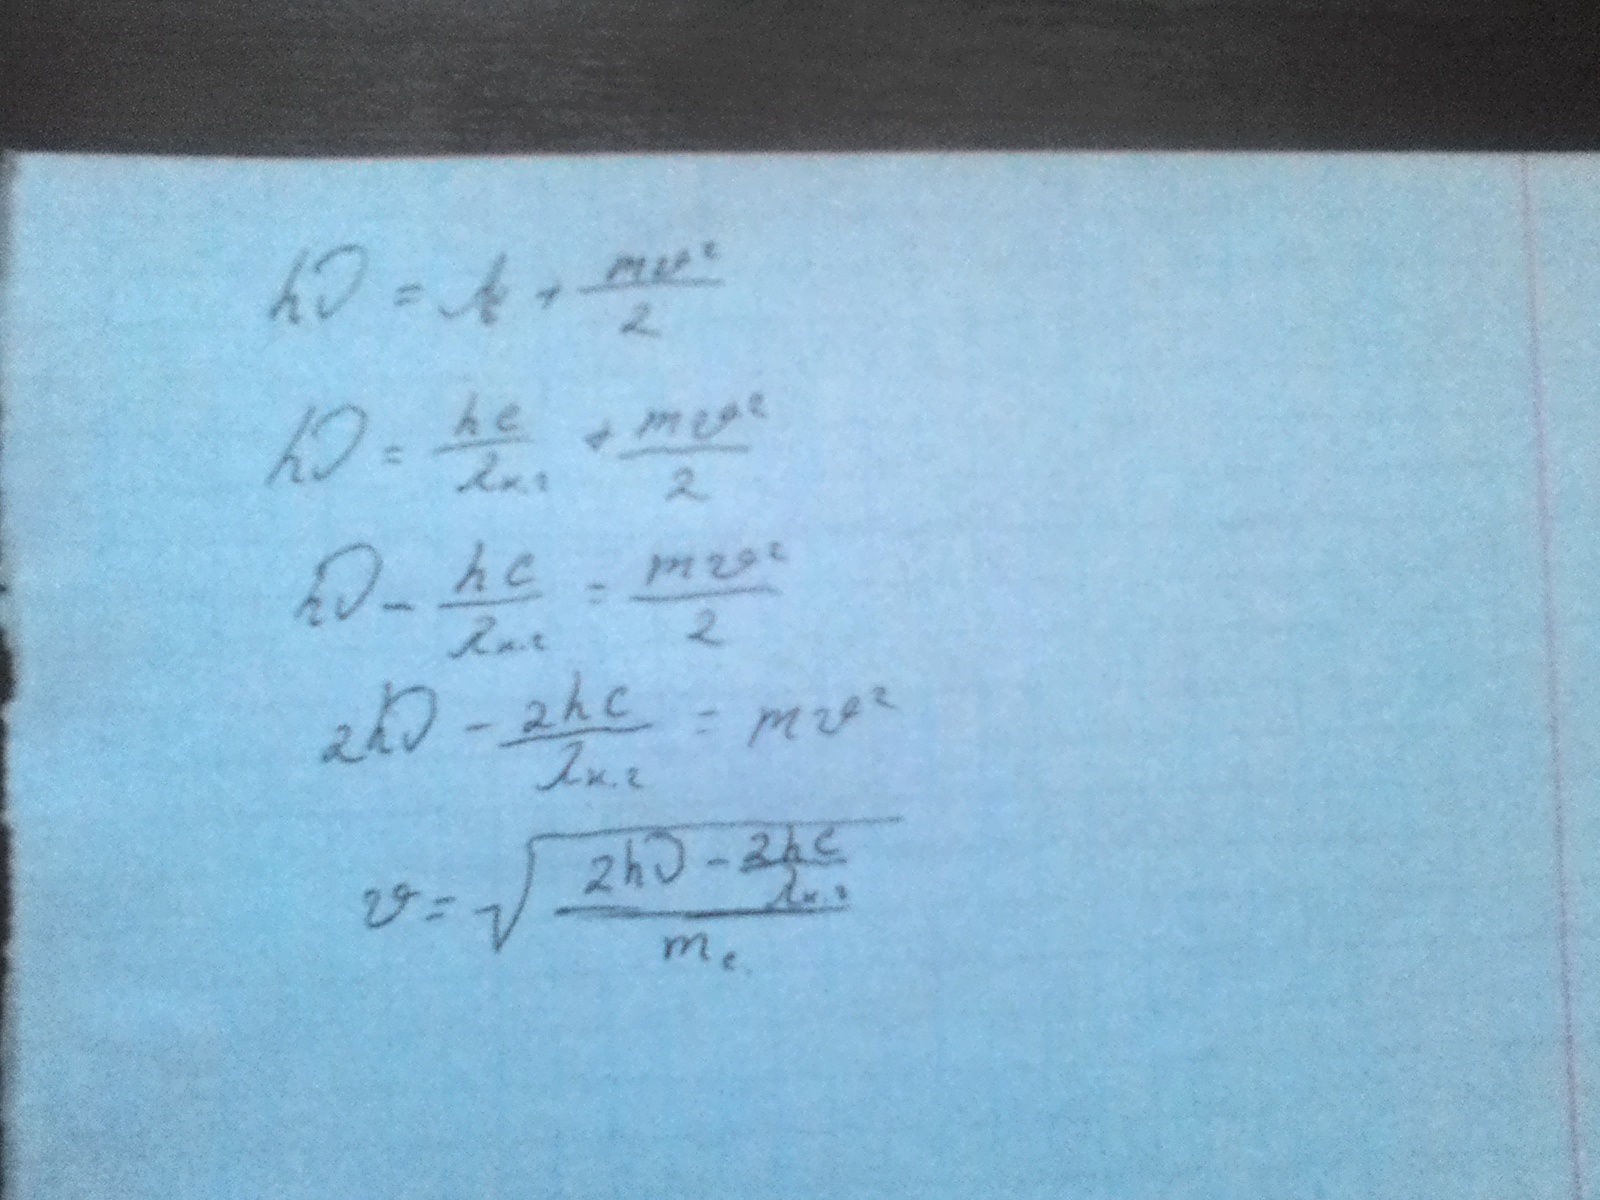 hν = A + mv²/2
hν = hc/λк.г + mv²/2
hν - hc/λк.г = mv²/2
2hν - 2hc/λк.г = mv²
v = √((2hν - 2hc/λк.г)/mₑ)